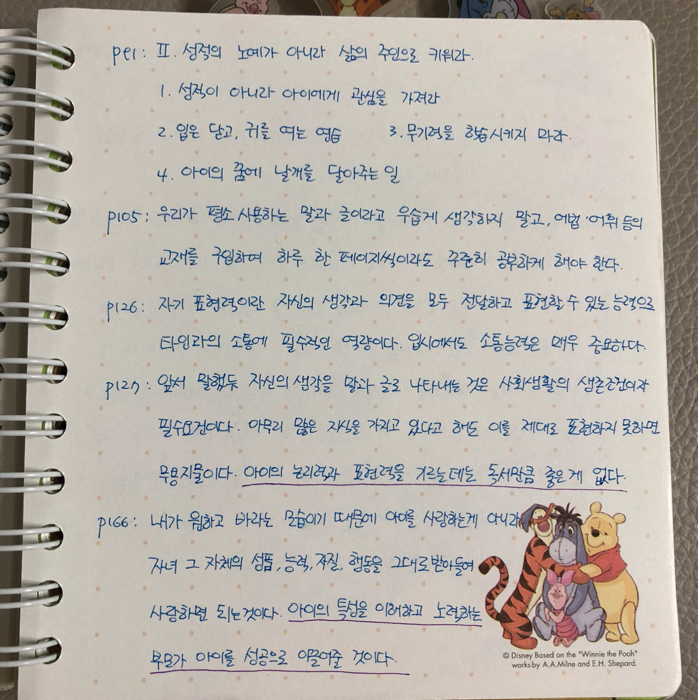 p91: Ⅱ. 성적의 노예가 아니라 삶의 주인으로 키워라.
1. 성적이 아니라 아이에게 관심을 가져라
2. 입은 닫고, 귀를 여는 연습 3. 무기력을 학습시키지 마라.
4. 아이의 꿈에 날개를 달아주는 일
p105: 우리가 평소 사용하는 말과 글이라고 우습게 생각하지 말고, 어법·어휘 등의
교재를 구입하여 하루 한 페이지씩이라도 꾸준히 공부하게 해야 한다.
p126: 자기 표현력이란 자신의 생각과 의견을 모두 전달하고 표현할 수 있는 능력으로
타인과의 소통에 필수적인 역량이다. 입시에서도 소통능력은 매우 중요하다.
p127: 앞서 말했두 자신의 생각을 말과 글로 나타내는 것은 사회생활의 생존조건이자
필수요건이다. 아무리 많은 지식을 가지고 있다고 해도 이를 제대로 표현하지 못하면
무용지물이다. 아이의 논리력과 표현력을 기르는데는 독서만큼 좋은 게 없다.
p166: 내가 원하고 바라는 모습이기 때문에 아이를 사랑하는게 아니라
자녀 그 자체의 성품, 능력, 자질, 행동을 그대로 받아들여
사랑하면 되는 것이다. 아이의 특성을 이해하고 노력하는
부모가 아이를 성공으로 이끌어줄 것이다.
© Disney Based on the "Winnie the Pooh"
works by A.A.Milne and E.H. Shepard.